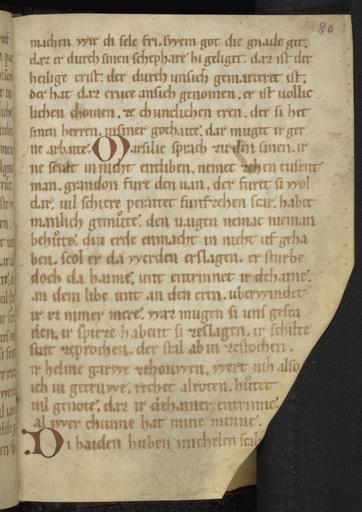 80
machen wir di sele fri. swem got die gnade git.
daz er durch sinen schephare hi geliget. daz ist der
heilige crist. der durch unsich gemarteret ist.
der hat daz cruce ansich genomen. er ist uollic
lichen chomen. ze chunclichen eren. der si het
sinen herren. in siner gothaite. daz mugit ir ger
ne arbaite. Marsilie sprach zu den sinen. ir
ne scult in nicht entliben. nemet zehen tusent
man. grandon fure den uan. der furet si wol
dar. uil schiere peraitet funfzehen scar. habet
manlich gemute. den uaigen nemac nieman
behute. diu erde enmacht in nicht uf geha
ben. scol er da werden erslagen. er sturbe
doch da haime. unt entrinnet ir dehaine.
an dem libe unt an den eren. uberwindet
ir ez nimer mere. waz mugen si uns gesca
den. ir spieze habent si zeslagen. ir schilte
sint zeprochen. der stal ab in zestochen.
ir helme garwe zehouwen. wert uch also
ich iu getruwe. rechet alroten. hutet
uil genote. daz ir dehainer entrinne.
al wer chunne hat mine minne.
Di haiden huben michelen scal